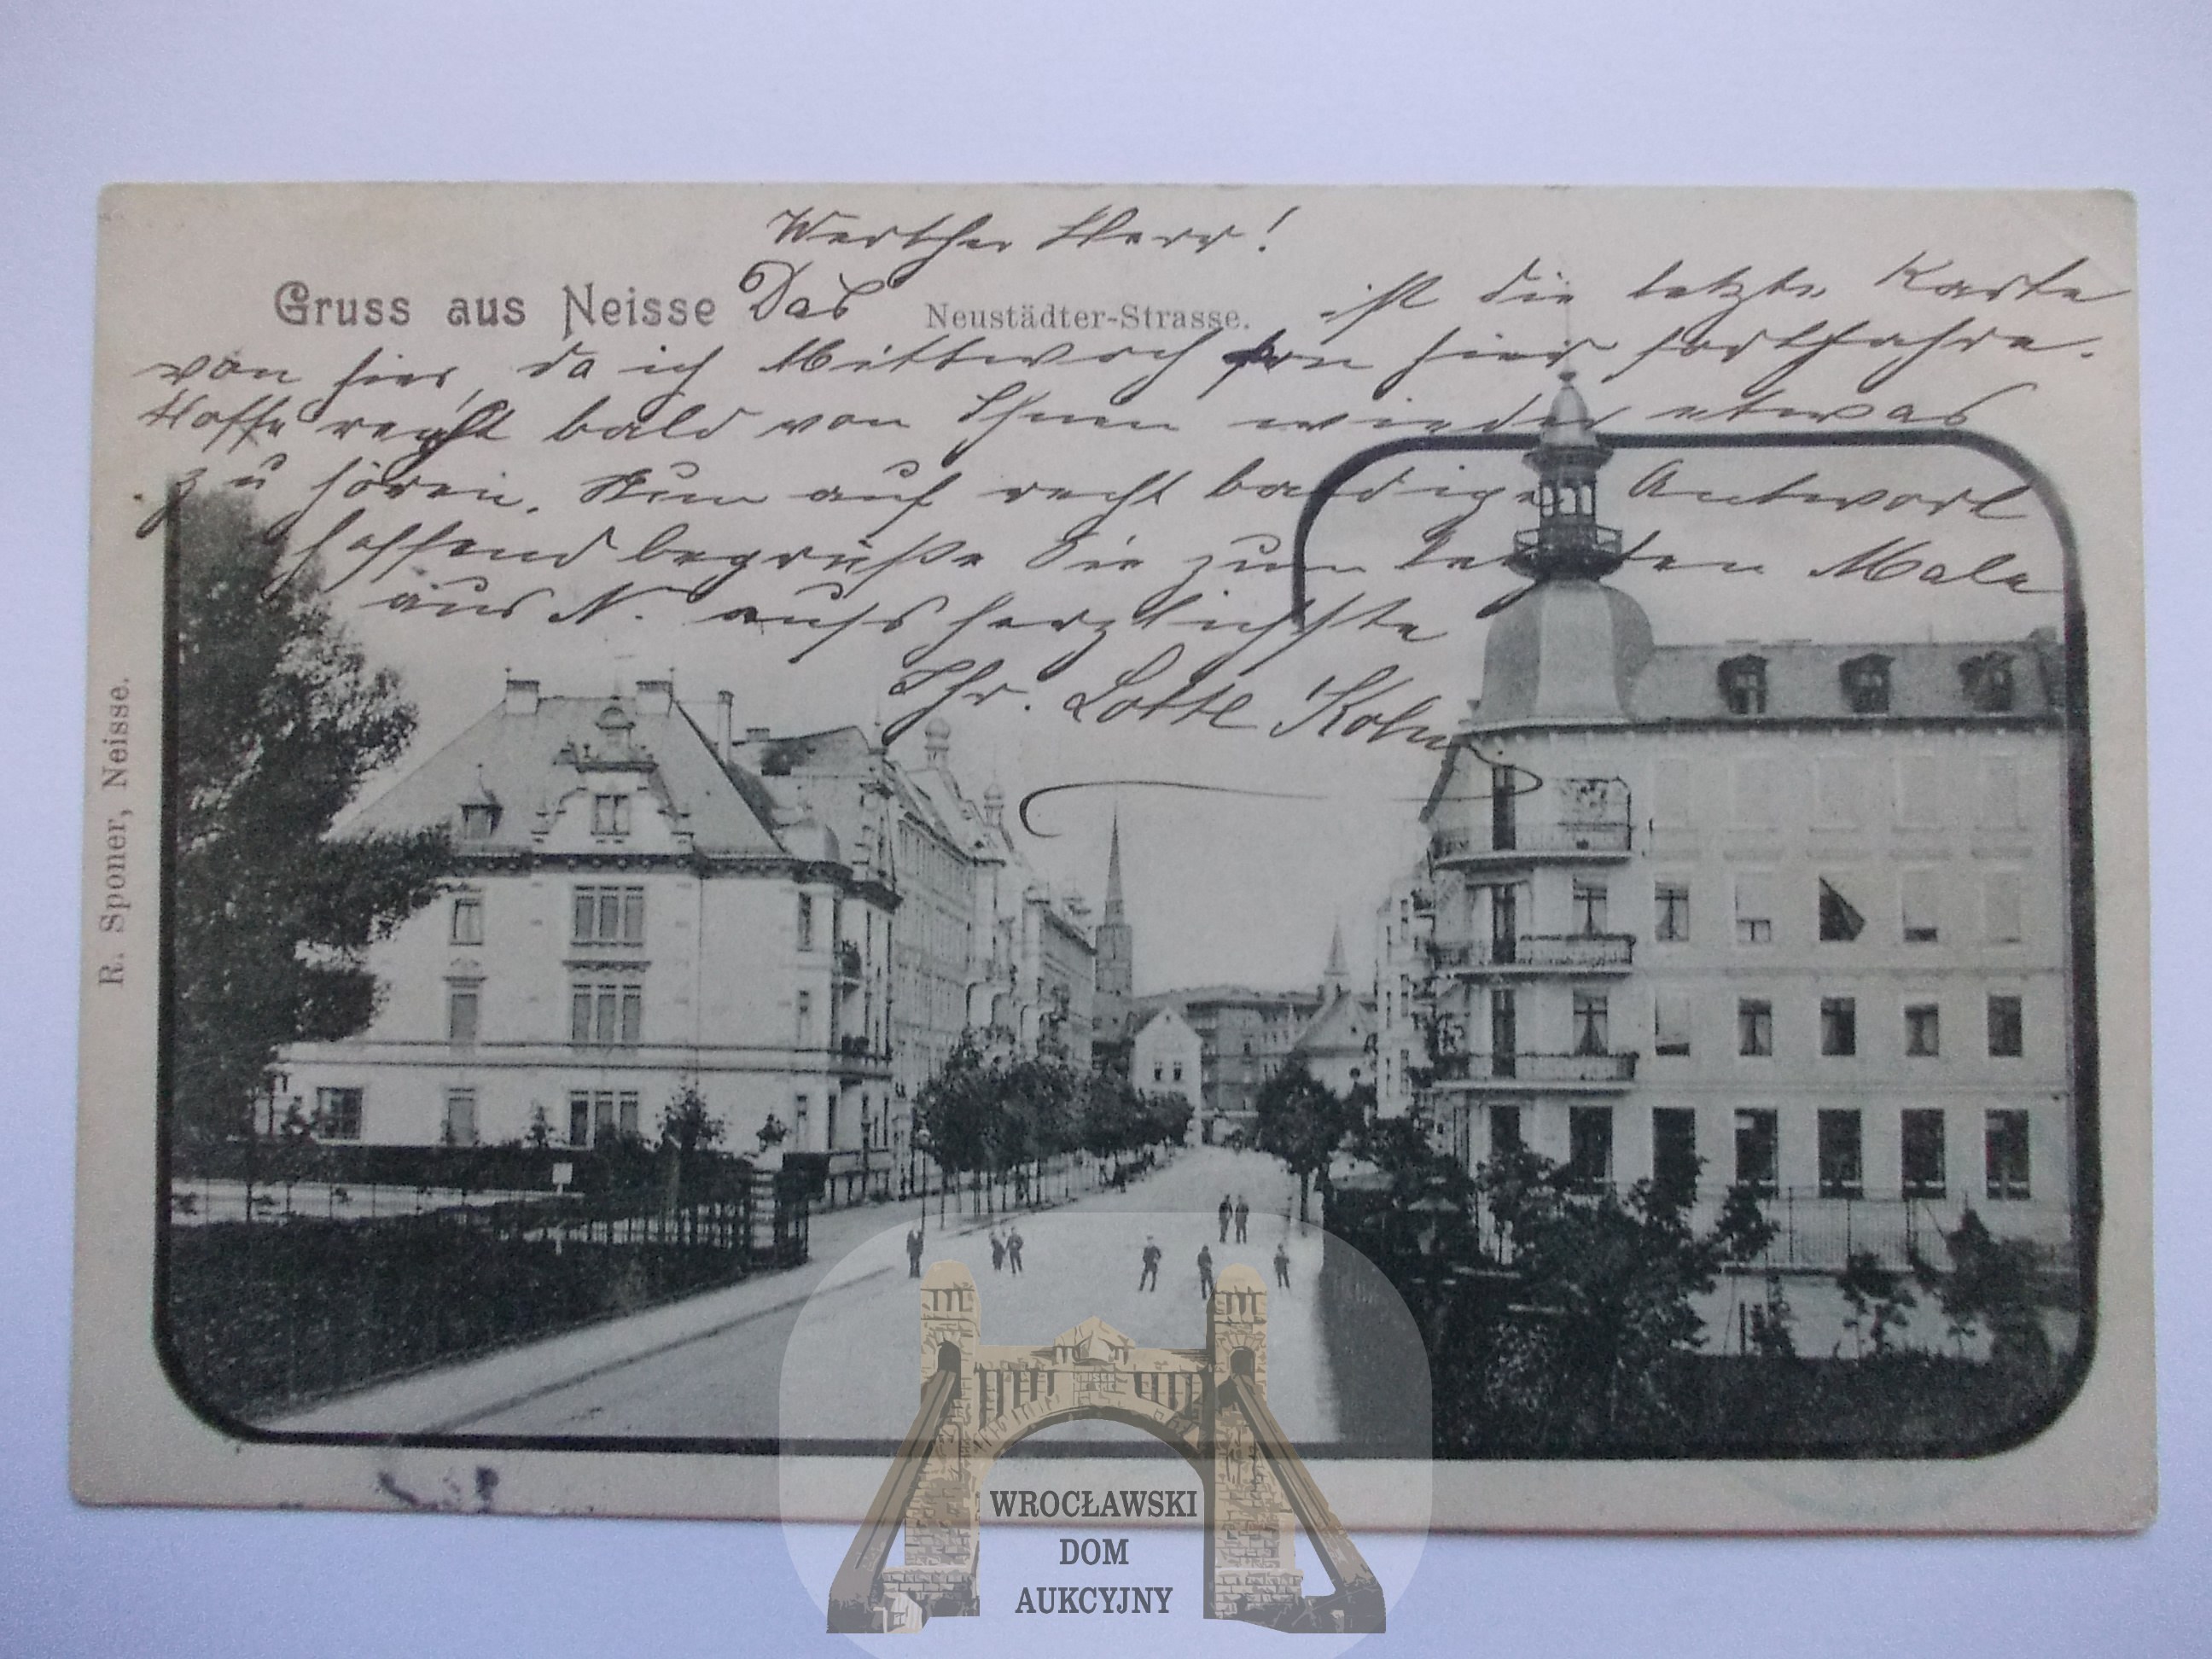 Werther Herr!
Gruss aus Neisse Das Neustädter-Strasse. ist die letzte Karte
von hier, da ich Mittwoch von hier fortfahre.
Hoffe recht bald von Ihnen wieder etwas
zu hören. Nun auf recht baldige Antwort
hoffend begrüße Sie zum letzten Male
aus N. aufs herzlichste
Ihr. Lotte
R. Sponer, Neisse.
WROCŁAWSKI
DOM
AUKCYJNY